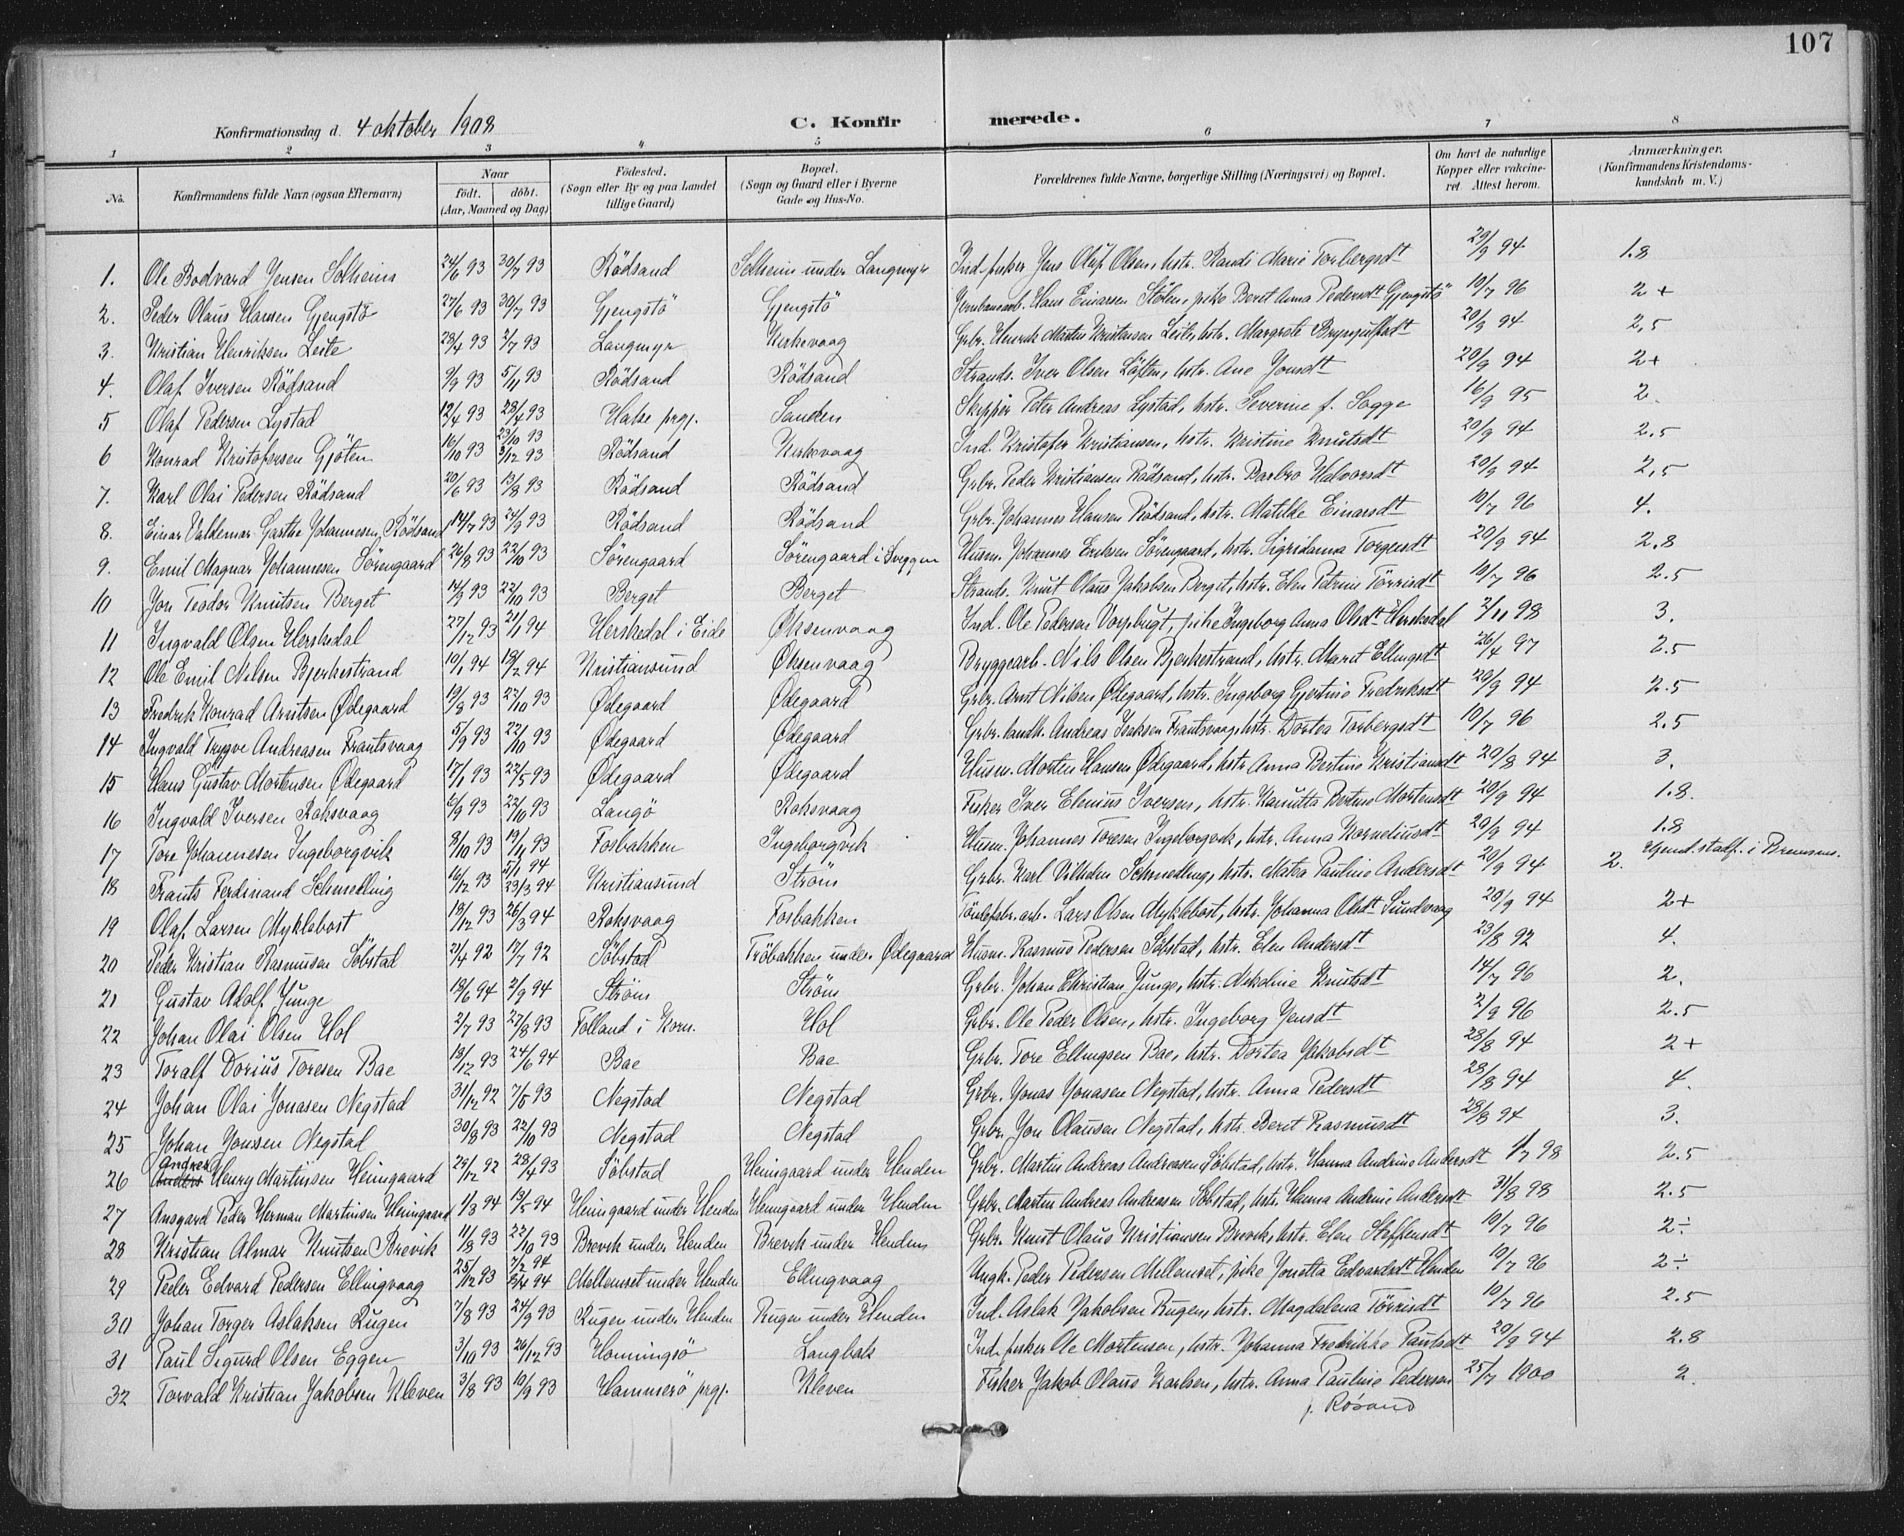 107
Konfirmationsdag d. 4 oktober 1908
C. Konfirmerede.
1 2 3 4 5 6 7 8
No. Konfirmandens fulde Navn (ogsaa Efternavn) Naar født. døbt. (Aar, Maaned og Dag) Fødested. (Sogn eller By og paa Landet tillige Gaard) Bopæl. (Sogn og Gaard eller i Byerne Gade og Hus-No. Forældrenes fulde Navne, borgerlige Stilling (Næringsvei) og Bopæl. Om havt de naturlige Kopper eller vaccineret. Attest herom. Anmærkninger. (Konfirmandens Kristendomskundskab m. V.)
1. Ole Bodvard Jensen Solheim 24/6 93 30/7 93 Rödsand Solheim under Langmyr Ind. fisker Jens Oluf Olsen, hstr. Randi Marie Torbergsdt 29/9 94 1.8
2. Peder Olaus Hansen Gjengstö 27/6 93 30/7 93 Gjengstö Gjengstö Jernbanearb. Hans Einarsen Stölen, pike Beret Anna Pedersdt Gjengstö 10/7 96 2+
3. Kristian Henriksen Leite 23/4 93 2/7 93 Langmyr Kirkevaag Grbr. Henrik Martin Kristensen Leite, hstr. Margrete Brynjulfsdt 20/9 94 2,5
4. Olaf Iversen Rödsand 9/9 93 5/11 93 Rödsand Rödsand Strands. Iver Olsen Löften, hstr. Ane Jonsdt 20/9 94 2+
5 Olaf Pedersen Lystad 12/4 93 23/4 93 Halse prgj. Sanden Skipper Peter Andreas Lystad, hstr. Severine f. Sagge 16/9 95 2.
6 Konrad Kristofersen Gjöten 16/10 93 23/10 93 3/12 93 Rödsand Kirkevaag Ind. Kristofer Kristiansen, hstr. Kristine Knutsdt 20/9 94 2.5
7. Karl Olai Pedersen Rödsand 20/6 93 13/8 93 Rödsand Rödsand Grbr. Peder Kristiansen Rödsand, hstr. Barbro Halvorsdt 20/9 94 2,5
8. Einar Valdemar Garthe Johannesen Rödsand 14/7 93 24/9 93 Rödsand Rödsand Grbr. Johannes Hansen Rödsand, hstr. Matilde Einarsdt 10/7 96 4.
9. Emil Magnar Johannesen Sörengaard 26/8 93 22/10 93 Sörengaard Sörengaard i Sveggen Husm. Johannes Eriksen Sörengaard, hstr. Sigridanna Torgersdt 20/9 94 2.8
10 Jon Teodor Knutsen Berget 14/9 93 22/10 93 Berget Berget Strands. Knut Olaus Jakobsen Berget, hstr. Elen Petrine Törrisdt 10/7 96 2.5
11 Ingvald Olsen Herskedal 27/12 93 21/1 94 Herskedal i Eide Øksenvaag Ind. Ole Pedersen Vorpbugt, pike Ingeborg Anna Olsdt Herskedal 2/11 98 3.
12 Ole Emil Nilsen Bjerkestrand 10/1 94 18/2 94 Kristiansund Øksenvaag Bryggearb. Nils Olsen Bjerkestrand, hstr. Marit Ellingsdt 26/4 97 2.5
13 Fredrik Konrad Arntsen Ødegaard 19/8 93 22/10 93 Ødegaard Ødegaard Grbr. Arnt Nilsen Ødegaard, hstr. Ingeborg Gjertine Fredriksdt 20/9 94 2.5
14 Ingvald Trygve Andreasen Frantsvaag 5/9 93 22/10 93 Ødegaard Ødegaard Grbr. landh. Andreas Isaksen Frantsvaag, hstr. Dortea Torbergsdt 10/7 96 2.5
15 Hans Gustav Mortensen Ødegaard 17/1 93 22/5 93 Ødegaard Ødegaard Husm. Morten Hansen Ødegaard, hstr. Anna Bertine Kristiansdt 20/8 94 3.
16 Ingvald Iversen Roksvaag 6/9 93 22/10 93 Langö Roksvaag Fisker Iver Elenius Iversen, hstr. Hanutta Bertine Mortensdt 20/9 94 1.8.
17 Tore Johannesen Ingeborgvik 8/10 93 19/11 93 Fosbakken Ingeborgvik Husm. Johannes Toresen Ingeborgvik, hstr. Anna Korneliusdt 20/9 94 1.8
18 Frants Ferdinand Schmelling 16/12 93 5/1 94 23/3 94 Kristiansund Ström Grbr. Karl Vilhelm Schmelling, hstr. Matea Pauline Andersdt 20/9 94 2. Hjemd. stadf. i Bremsnes.
19 Olaf Larsen Myklebost 13/12 93 26/3 94 Roksvaag Fosbakken Töndefabr. arb. Lars Olsen Myklebost, hstr. Johanna Olsdt Sundvaag 20/9 94 2+
20 Peder Kristian Rasmusen Söbstad 21/4 92 17/7 92 Söbstad Tröbakken under Ødegaard Husm. Rasmus Pedersen Söbstad, hstr. Elen Andersdt 23/8 92 4.
21 Gustav Adolf Junge 18/6 94 2/9 94 Ström Ström Grbr. Johan Christian Junge, hstr. Askoline Knutsdt 14/7 96 2.
22 Johan Olai Olsen Hol 2/7 93 27/8 93 Folland i Korn. Hol Grbr. Ole Peder Olsen, hstr. Ingeborg Jensdt 2/9 96 2.5
23 Toralf Dorius Toresen Bae 13/12 93 24/6 94 Bae Bae Grbr. Tore Ellingsen Bae, hstr. Dortea Jakobsdt 28/8 94 2+
24 Johan Olai Jonasen Negstad 31/12 92 7/5 93 Negstad Negstad Grbr. Jonas Jonasen Negstad, hstr. Anna Pedersdt 28/8 94 4.
25 Johan Jonssen Negstad 30/8 93 22/10 93 Negstad Negstad Grbr. Jon Olausen Negstad, hstr. Beret Rasmusdt 28/8 94 3.
26 Andreas Anders Henry Martinsen Heimgaard 29/12 92 23/4 93 Söbstad Heimgaard under Henden Grbr. Martin Andreas Andreasen Söbstad, hstr. Hanna Andrine Andersdt 1/7 98 2.5
27 Ansgard Peder Herman Martinsen Heimgaard 1/3 94 13/5 94 Heimgaard under Henden Heimgaard under Henden Grbr. Martin Andreas Andreasen Söbstad, hstr. Hanna Andrine Andersdt 31/8 98 2.5
28 Kristian Almar Knutsen Brevik 11/8 93 22/10 93 Brevik under Henden Brevik under Henden Grbr. Knut Olaus Kristiansen Brevik, hstr. Elen Steffensdt 10/7 96 2÷
29 Peder Edvard Pedersen Ellingvaag 25/12 93 7/2 94 94 Mellemset under Henden Ellingvaag Ungk. Peder Pedersen Mellemset, pike Jonetta Edvardsdt Henden 10/7 96 2÷
30 Johan Torger Aslaksen Rugen 7/8 93 24/9 93 Rugen under Henden Rugen under Henden Ind. Aslak Jakobsen Rugen, hstr. Magdalena Törrisdt 10/7 96 2.5
31 Paul Sigurd Olsen Eggen 3/10 93 26/12 93 Honningsö Langbak Ind. fisker Ole Mortensen, hstr. Johanna Fredrikke Paulsdt 20/9 94 2.8
32 Torvald Kristian Jakobsen Kleven 3/8 93 10/9 93 Hammerö prgj. Kleven Fisker Jakob Olaus Karlsen, hstr. Anna Pauline Pedersen 25/7 1900 2.
f. Rösand